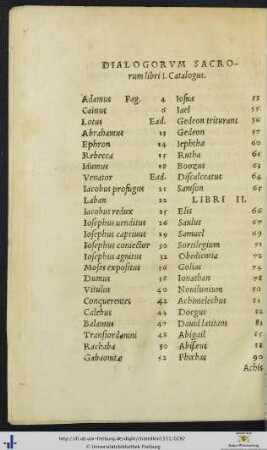 DIALOGORVM SACRO-
rum libri I. Catalogus.
Adamus Pag. 4
Cainus 6
Lotus Ead.
Abrahamus 13
Ephron 14
Rebecca 15
Idumus 18
Venator Ead.
Iacobus profugus 21
Laban 22
Iacobus redux 25
Iosephus uenditus 26
Iosephus captiuus 29
Iosephus coniector 30
Iosephus agnitus 32
Moses expositus 36
Dumus 38
Vitulus 40
Conquerentes 42
Calebus 44
Balamus 47
Transiordanini 48
Rachaba 50
Gabaonitæ 52
Iosua 53
Iael 55
Gedeon triturans 56
Gedeon 57
Iephtha 60
Rutha 61
Boozus 63
Discalceatus 64
Samson 65
LIBRI II.
Elis 66
Saulus 67
Samuel 69
Sortilegium 71
Obedientia 72
Golias 74
Ionathan 78
Nouilunium 80
Achimelechus 81
Doegus 82
Dauid latitans 83
Abigail 85
Abisæus 88
Phœbas 90
Achis
http://dl.ub.uni-freiburg.de/diglit/chateillon1551/0282
Universitätsbibliothek Freiburg